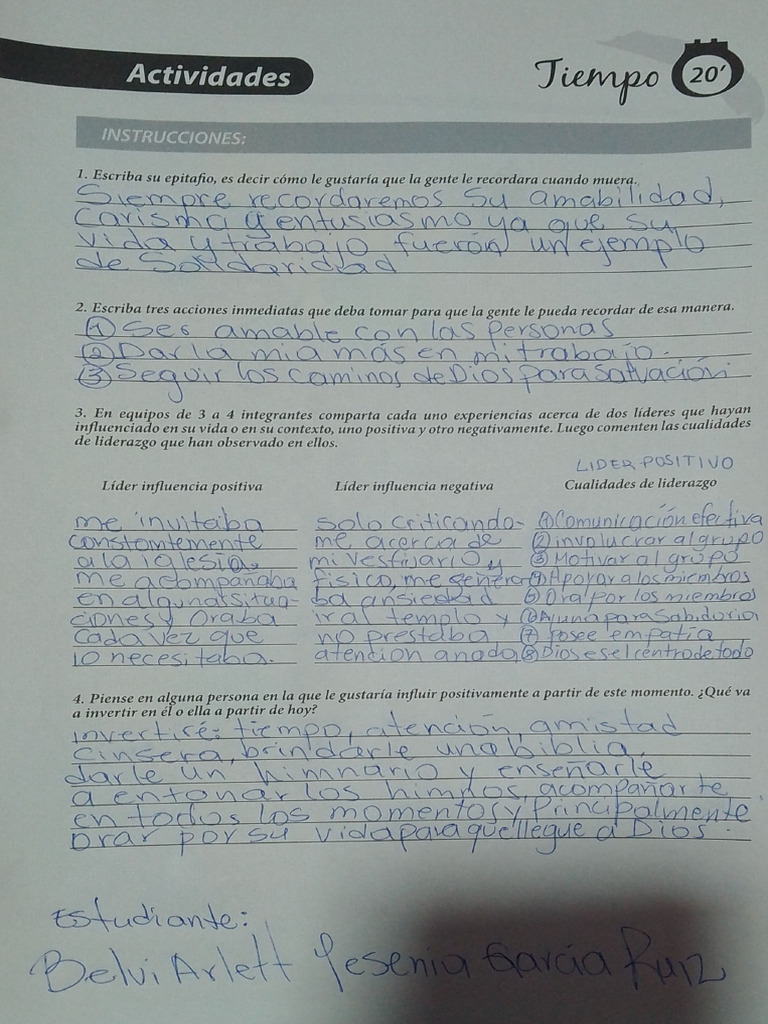 Actividades
Tiempo 20'
INSTRUCCIONES:
1. Escriba su epitafio, es decir cómo le gustaría que la gente le recordara cuando muera.
Siempre recordaremos su amabilidad,
carisma y entusiasmo ya que su
vida y trabajo fuerón un ejemplo
de Solidaridad
2. Escriba tres acciones inmediatas que deba tomar para que la gente le pueda recordar de esa manera.
① Ser amable con las personas
② Dar la mia más en mi trabajo.
③ Seguir los caminos de Dios para Salvación
3. En equipos de 3 a 4 integrantes comparta cada uno experiencias acerca de dos líderes que hayan
influenciado en su vida o en su contexto, uno positiva y otro negativamente. Luego comenten las cualidades
de liderazgo que han observado en ellos.
LIDER POSITIVO
Líder influencia positiva
me invitaba
constantemente
a la iglesia,
me acompañaba
en algunas situa-
ciones y oraba
cada vez que
lo necesitaba.
Líder influencia negativa
solo criticando-
me acerca de
mi vestuario y
físico, me genera
ba ansiedad
ir al templo y
no prestaba
atención a nada
Cualidades de liderazgo
① Comunicación efectiva
② involucrar al grupo
③ Motivar al grupo
④ Apoyar a los miembros
⑤ Ora por los miembros
⑥ Ayuna para Sabiduria
⑦ Posee empatía
⑧ Dios es el centro de todo
4. Piense en alguna persona en la que le gustaría influir positivamente a partir de este momento. ¿Qué va
a invertir en él o ella a partir de hoy?
invertiré: tiempo, atención, amistad
cinsera, brindarle una biblia,
darle un himnario y enseñarle
a entonar los himnos, acompañarte
en todos los momentos y Principalmente
orar por su vida para que llegue a Dios.
Estudiante:
Belvi Arlett Yesenia García Ruiz